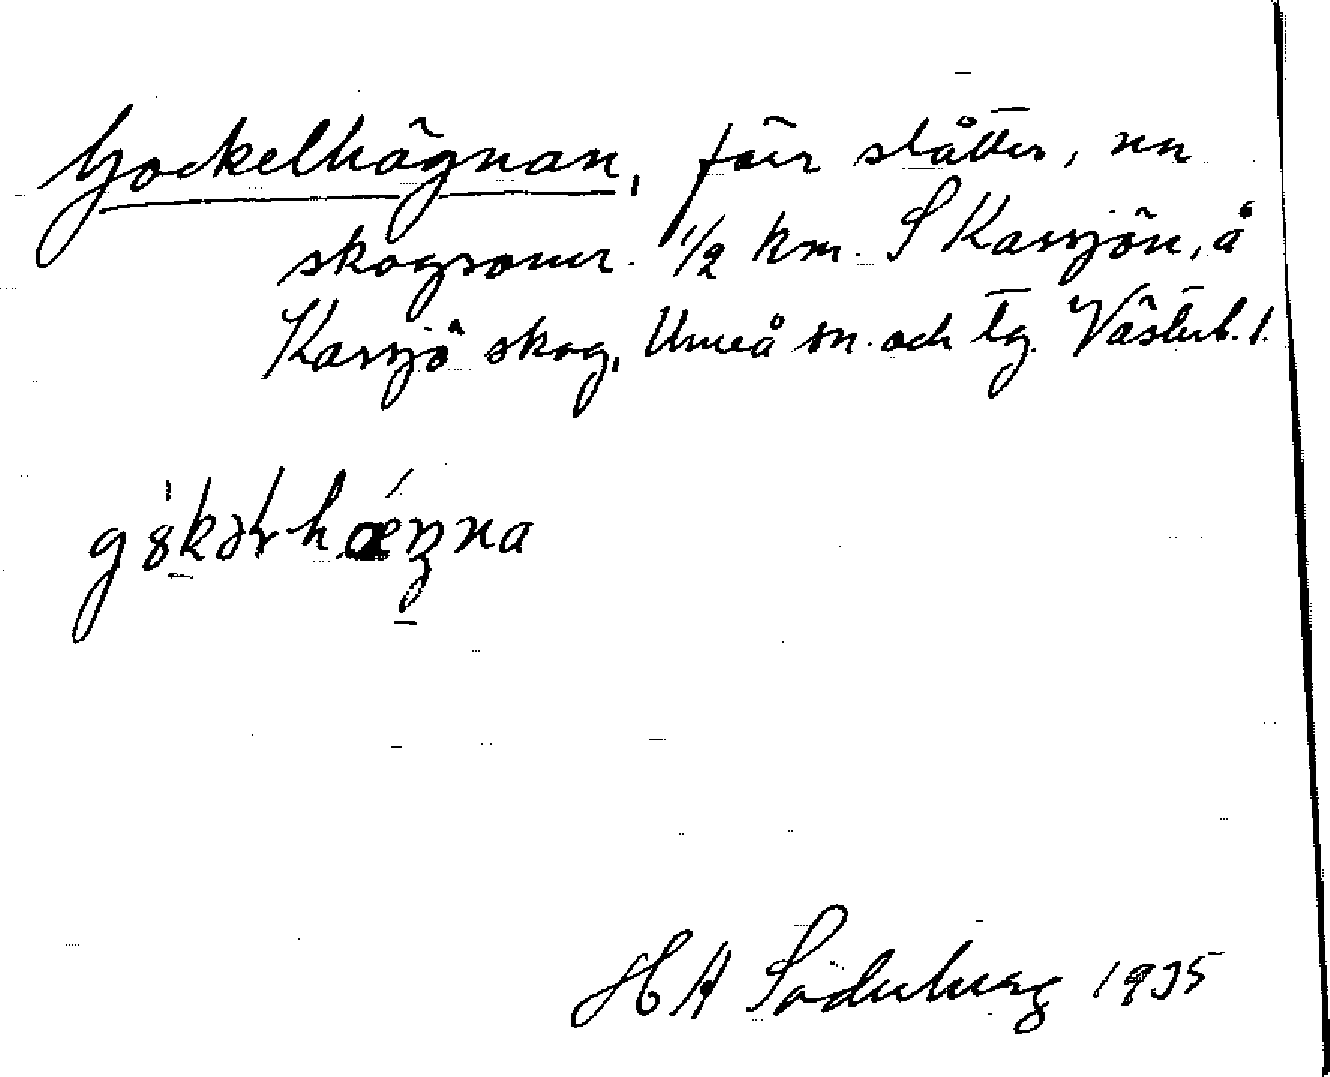 Gockelhägnan, förr slåtter, nu
skogsomr. 1/2 km. S Kassjön, å
Kassjö skog, Umeå sn. och tg. Västerb. l.
HA Söderberg 1935